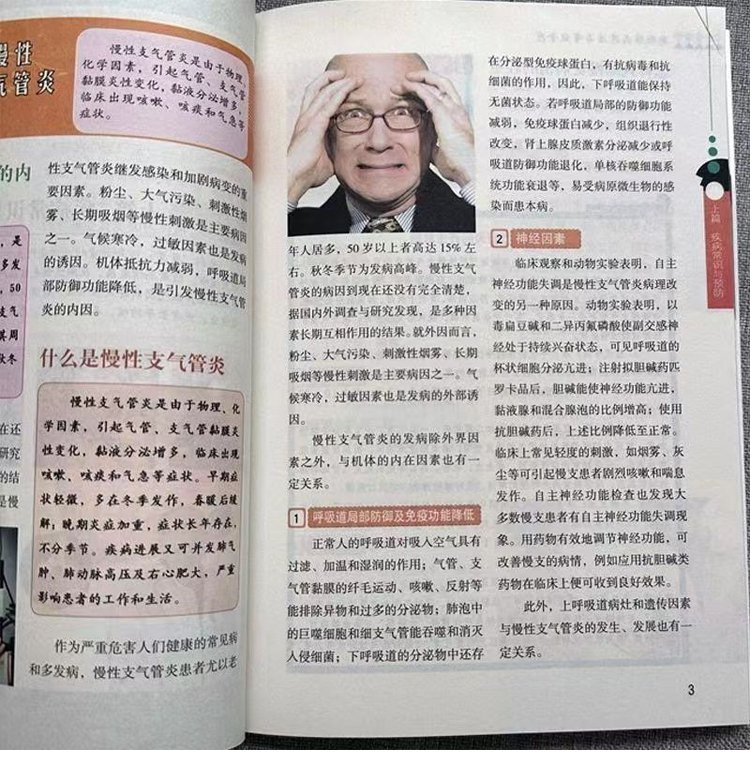 慢性
气管炎
慢性支气管炎是由于物理、
化学因素，引起气管、支气管
黏膜炎性变化，黏液分泌增多，
临床出现咳嗽、咳痰和气急等
症状。
的内
是
多发
50
支气
其周
秋冬
在还
研究
的结
是慢
性支气管炎继发感染和加剧病变的重
要因素。粉尘、大气污染、刺激性烟
雾、长期吸烟等慢性刺激是主要病因
之一。气候寒冷，过敏因素也是发病
的诱因。机体抵抗力减弱，呼吸道局
部防御功能降低，是引发慢性支气管
炎的内因。
什么是慢性支气管炎
慢性支气管炎是由于物理、化
学因素，引起气管、支气管黏膜炎
性变化，黏液分泌增多，临床出现
咳嗽、咳痰和气急等症状。早期症
状轻微，多在冬季发作，春暖后缓
解；晚期炎症加重，症状长年存在，
不分季节。疾病进展又可并发肺气
肿、肺动脉高压及右心肥大，严重
影响患者的工作和生活。
作为严重危害人们健康的常见病
和多发病，慢性支气管炎患者尤以老
年人居多，50岁以上者高达15%左
右。秋冬季节为发病高峰。慢性支气
管炎的病因到现在还没有完全清楚，
据国内外调查与研究发现，是多种因
素长期互相作用的结果。就外因而言，
粉尘、大气污染、刺激性烟雾、长期
吸烟等慢性刺激是主要病因之一。气
候寒冷，过敏因素也是发病的外部诱
因。
慢性支气管炎的发病除外界因
素之外，与机体的内在因素也有一
定关系。
1 呼吸道局部防御及免疫功能降低
正常人的呼吸道对吸入空气具有
过滤、加温和湿润的作用；气管、支
气管黏膜的纤毛运动、咳嗽、反射等
能排除异物和过多的分泌物；肺泡中
的巨噬细胞和细支气管能吞噬和消灭
入侵细菌；下呼吸道的分泌物中还存
在分泌型免疫球蛋白，有抗病毒和抗
细菌的作用，因此，下呼吸道能保持
无菌状态。若呼吸道局部的防御功能
减弱，免疫球蛋白减少，组织退行性
改变，肾上腺皮质激素分泌减少或呼
吸道防御功能退化，单核吞噬细胞系
统功能衰退等，易受病原微生物的感
染而患本病。
2 神经因素
临床观察和动物实验表明，自主
神经功能失调是慢性支气管炎病理改
变的另一种原因。动物实验表明，以
毒扁豆碱和二异丙氟磷酸使副交感神
经处于持续兴奋状态，可见呼吸道的
杯状细胞分泌亢进；注射拟胆碱药匹
罗卡品后，胆碱能使神经功能亢进，
黏液腺和混合腺泡的比例增高；使用
抗胆碱药后，上述比例降低至正常。
临床上常见轻度的刺激，如烟雾、灰
尘等可引起慢支患者剧烈咳嗽和喘息
发作。自主神经功能检查也发现大
多数慢支患者有自主神经功能失调现
象。用药物有效地调节神经功能，可
改善慢支的病情，例如应用抗胆碱类
药物在临床上便可收到良好效果。
此外，上呼吸道病灶和遗传因素
与慢性支气管炎的发生、发展也有一
定关系。
上篇 疾病常识与预防
3